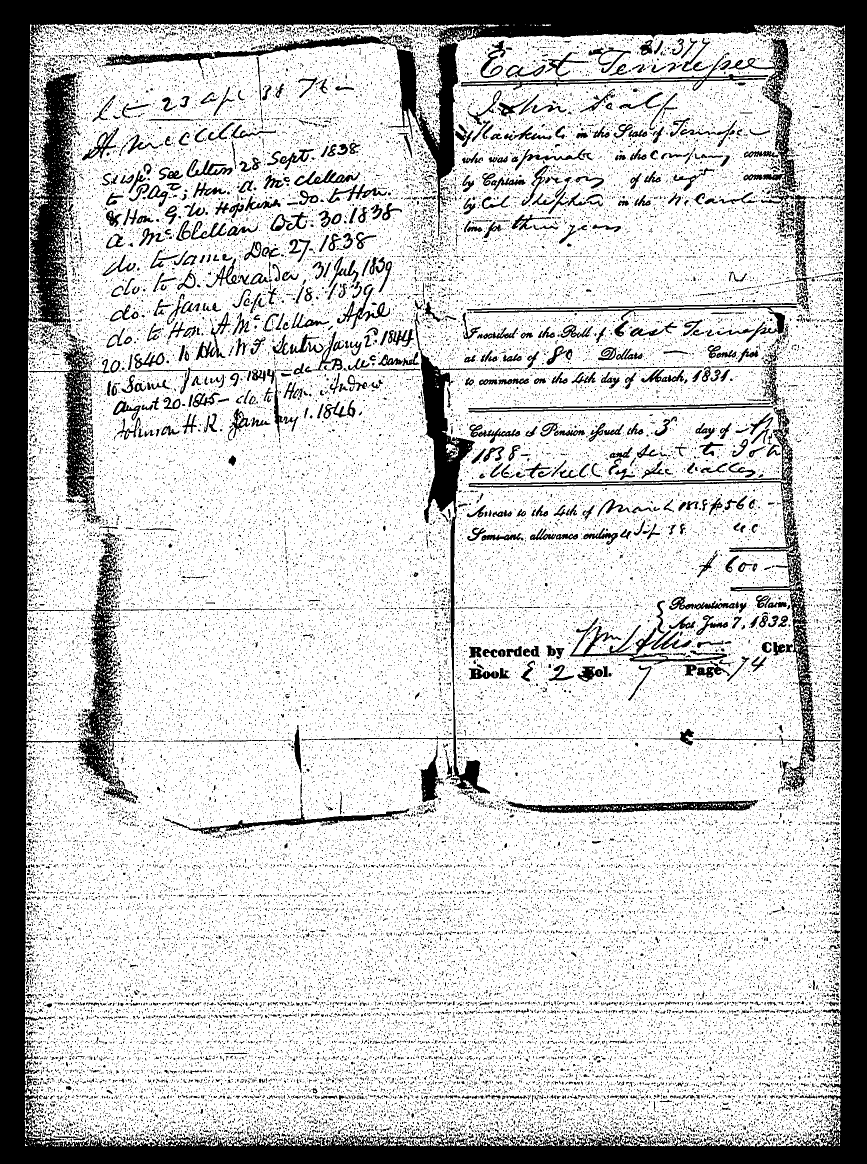 23 Apl 38
A. McClellan
Susp.d See letters 28 Sept. 1838
to P. Agt; Hon. A. McClellan
& Hon. G. W. Hopkins - do. to Hon.
A. McClellan Oct. 30. 1838
do. to same, Dec. 27. 1838
do. to D. Alexander, 31 July 1839
do. to same Sept. 18. 1839
do. to Hon. A. McClellan, April
20. 1840. to Hon. W. T. Senter Jany 2d. 1844
to Same Jany 9. 1844 - do to B. McDannel
August 20. 1845 - do. to Hon. Andrew
Johnson H. R. January 1. 1846.
31.377
East Tennessee
John Scalf
of Hawkins in the State of Tennessee
who was a private in the Company comm
by Captain Gregory of the regt comman
by Col Hepkin in the N. Carolin
line for three years
Inscribed on the Roll of East Tennessee
at the rate of 80 Dollars — Cents per
to commence on the 4th day of March, 1831.
Certificate of Pension issued the 3d day of Ap
1838 - and sent to Joh
Mitchell Esq See Valley,
Arrears to the 4th of March 1838 $560 -
Semi-ant. allowance ending 4 Sep 38 40
$ 600 -
Revolutionary Claim,
Act June 7, 1832.
Recorded by Wm Allison Cler
Book E 2 Vol. 7 Page 74